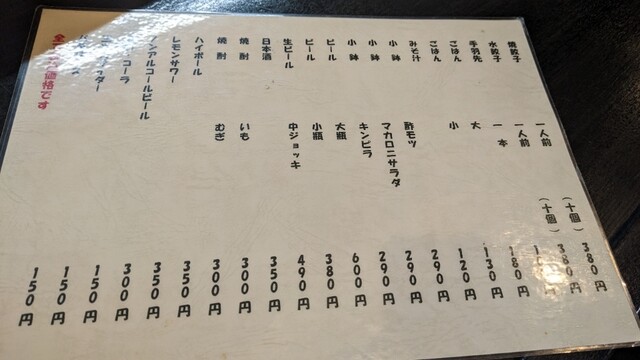 焼餃子 一人前 (十個) 380円
水餃子 一人前 (十個) 380円
手羽先 一本
ごはん 大 180円
ごはん 小 130円
みそ汁 120円
小鉢 酢モツ 290円
小鉢 マカロニサラダ 290円
小鉢 キンピラ 290円
ビール 大瓶 600円
ビール 小瓶 380円
生ビール 中ジョッキ 490円
日本酒 350円
焼酎 いも 300円
焼酎 むぎ 300円
ハイボール 350円
レモンサワー 350円
ノンアルコールビール 300円
コーラ 150円
150円
150円
価格です